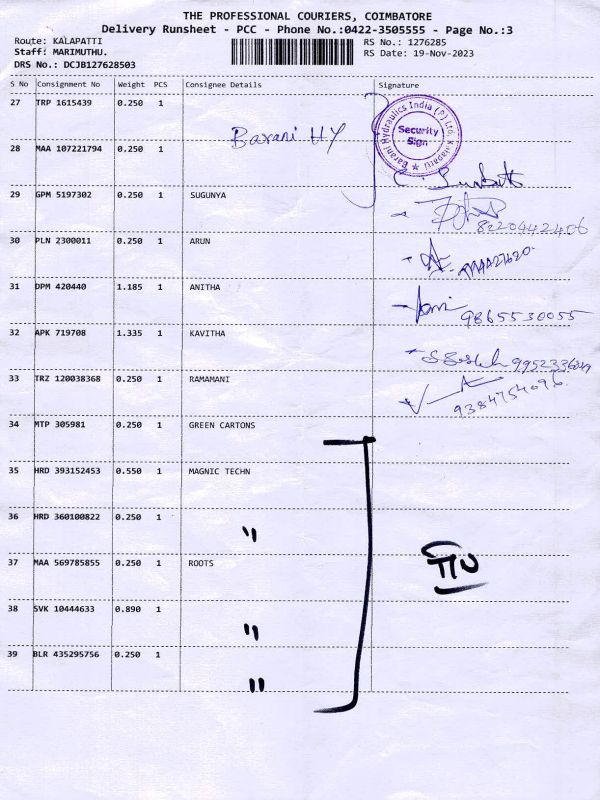 THE PROFESSIONAL COURIERS, COIMBATORE
Delivery Runsheet - PCC - Phone No.:0422-3505555 - Page No.:3
Route: KALAPATTI RS No.: 1276285
Staff: MARIMUTHU. RS Date: 19-Nov-2023
DRS No.: DCJB127628503
S No Consignment No Weight PCS Consignee Details Signature
27 TRP 1615439 0.250 1
Barani Hydraulics India (P) Ltd, Kalapatti
Security
Sign
Barani HY
28 MAA 107221794 0.250 1
29 GPM 5197302 0.250 1 SUGUNYA
8220442406
30 PLN 2300011 0.250 1 ARUN
31 DPM 420440 1.185 1 ANITHA
9865530055
32 APK 719708 1.335 1 KAVITHA
33 TRZ 120038368 0.250 1 RAMAMANI
9384754096
34 MTP 305981 0.250 1 GREEN CARTONS
35 HRD 393152453 0.550 1 MAGNIC TECHN
36 HRD 360100822 0.250 1 "
37 MAA 569785855 0.250 1 ROOTS
38 SVK 10444633 0.890 1 "
39 BLR 435295756 0.250 1 "